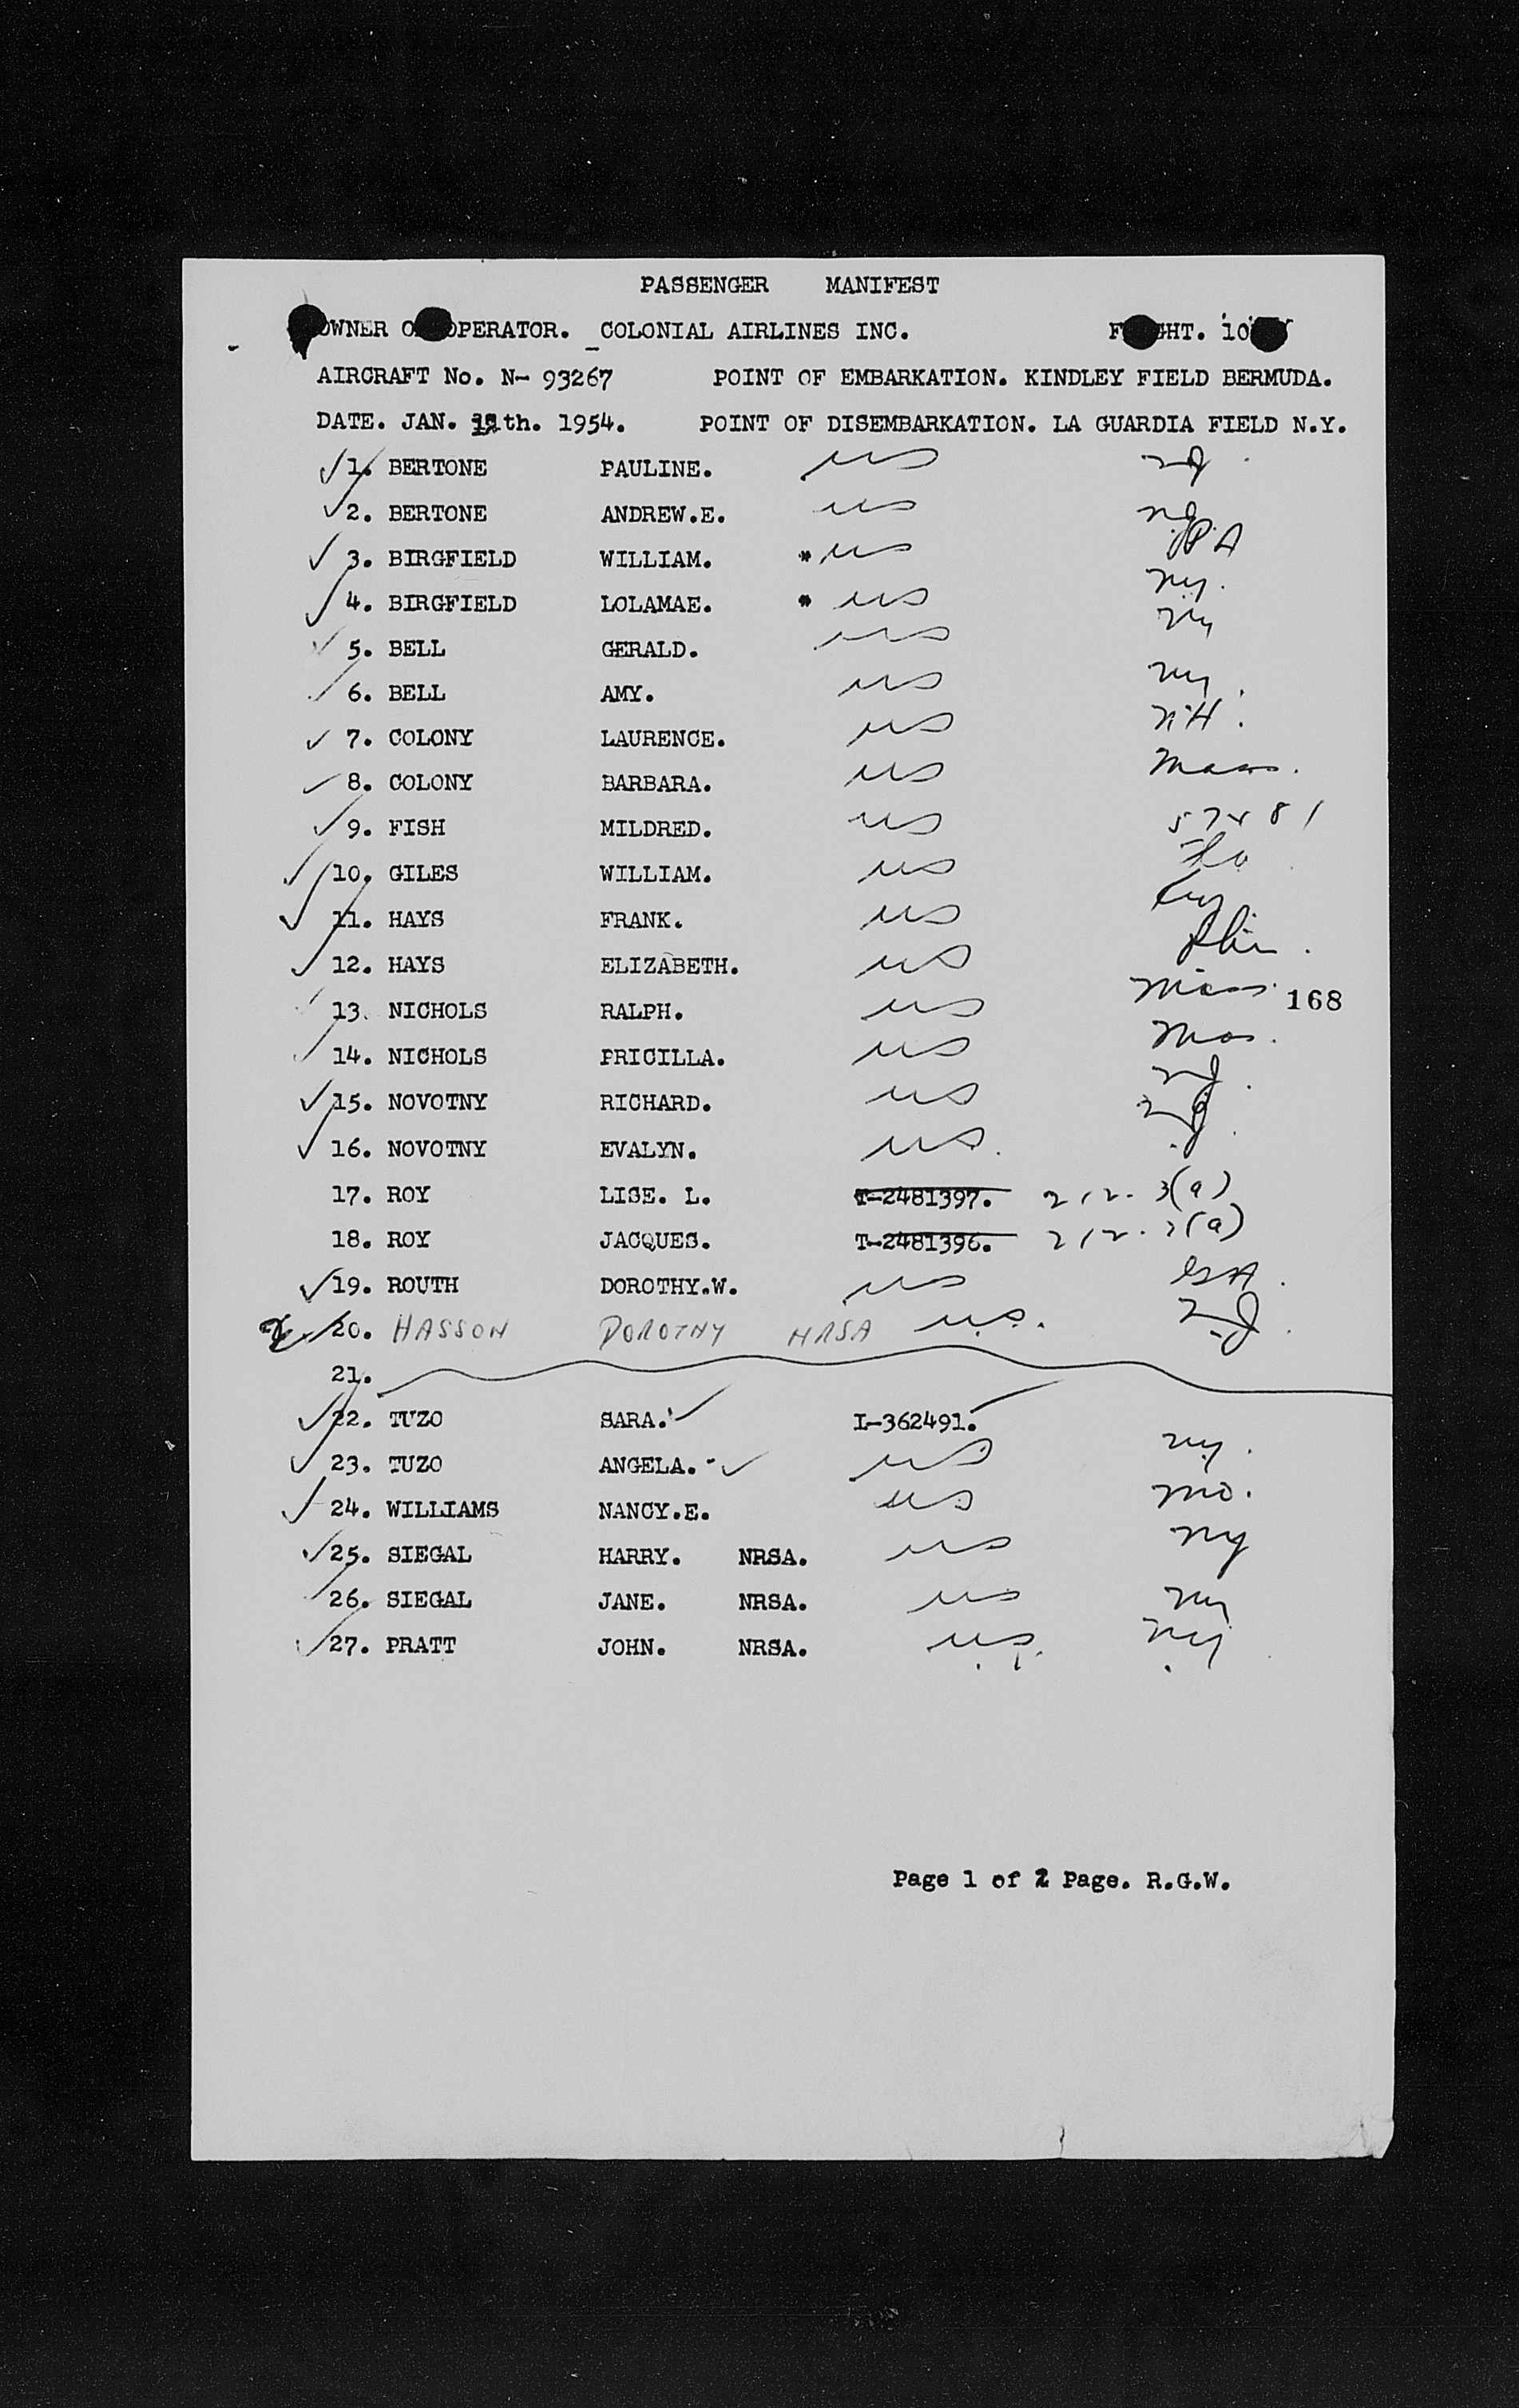 PASSENGER MANIFEST
OWNER O OPERATOR. COLONIAL AIRLINES INC. F GHT. 10
AIRCRAFT No. N- 93267 POINT OF EMBARKATION. KINDLEY FIELD BERMUDA.
DATE. JAN. th. 1954. POINT OF DISEMBARKATION. LA GUARDIA FIELD N.Y.
1. BERTONE PAULINE. us NJ
2. BERTONE ANDREW.E. us NJ
3. BIRGFIELD WILLIAM. * us PA
4. BIRGFIELD LOLAMAE. * us NY.
5. BELL GERALD. us NY
6. BELL AMY. us NY.
7. COLONY LAURENCE. us NH.
8. COLONY BARBARA. us Mass.
9. FISH MILDRED. us
10. GILES WILLIAM. us
11. HAYS FRANK. us
12. HAYS ELIZABETH. us
13. NICHOLS RALPH. us Mass. 168
14. NICHOLS PRICILLA. us Mas.
15. NOVOTNY RICHARD. us NJ.
16. NOVOTNY EVALYN. us. NJ.
17. ROY LISE. L. T-2481397. 212. 3(a)
18. ROY JACQUES. T-2481396. 212. 3(a)
19. ROUTH DOROTHY.W. us GA.
20. HASSON DOROTHY NRSA u.s. NJ.
21.
22. TUZO SARA. I-362491.
23. TUZO ANGELA. us NY.
24. WILLIAMS NANCY.E. us Mo.
25. SIEGAL HARRY. NRSA. us NY
26. SIEGAL JANE. NRSA. us NY
27. PRATT JOHN. NRSA. us. NY
Page 1 of 2 Page. R.G.W.